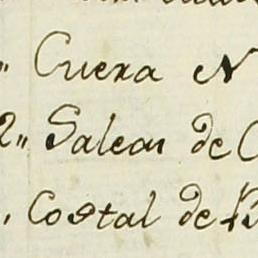 " Cuera N
2" Salcon de C
. Costal de